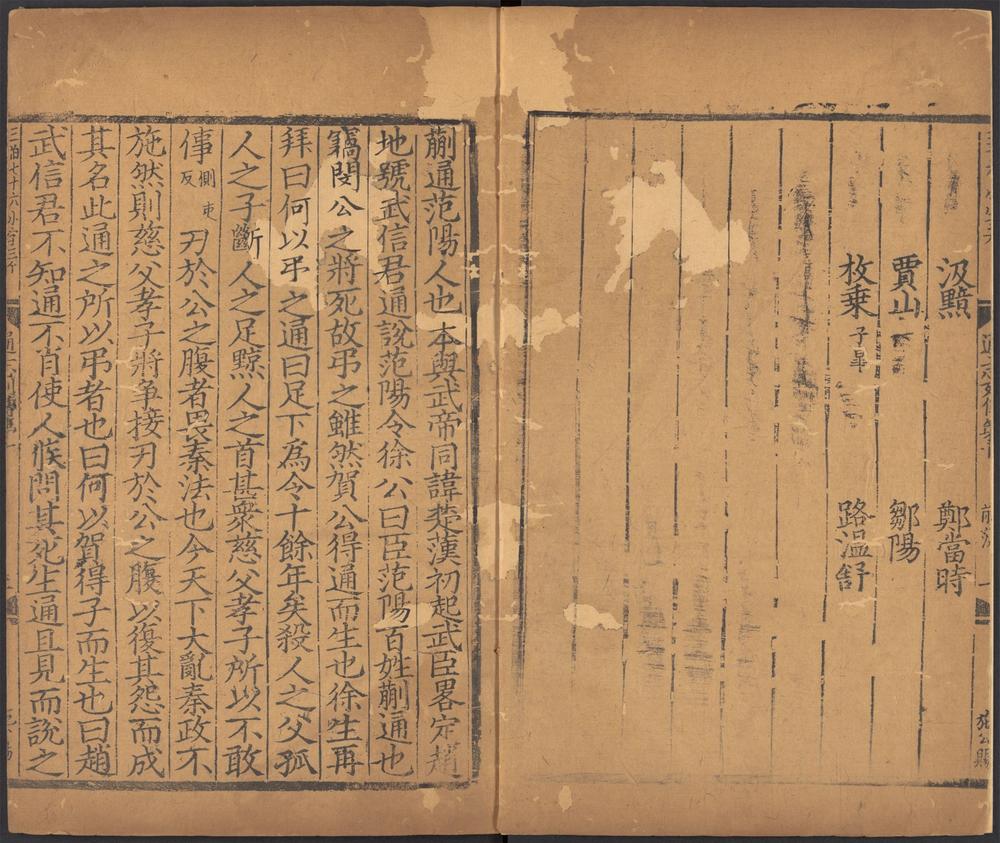 汲黯 鄭當時
賈山 鄒陽
枚乗 子臯 路溫舒
蒯通范陽人也本與武帝同諱楚漢初起武臣畧定趙
地號武信君通說范陽令徐公曰臣范陽百姓蒯通也
竊閔公之將死故弔之雖然賀公得通而生也徐生再
拜曰何以弔之通曰足下爲令十餘年矣殺人之父孤
人之子斷人之足黥人之首甚衆慈父孝子所以不敢
倳側吏反刃於公之腹者畏秦法也今天下大亂秦政不
施然則慈父孝子將争接刃於公之腹以復其怨而成
其名此通之所以弔者也曰何以賀得子而生也曰趙
武信君不知通不肖使人候問其死生通且見而說之